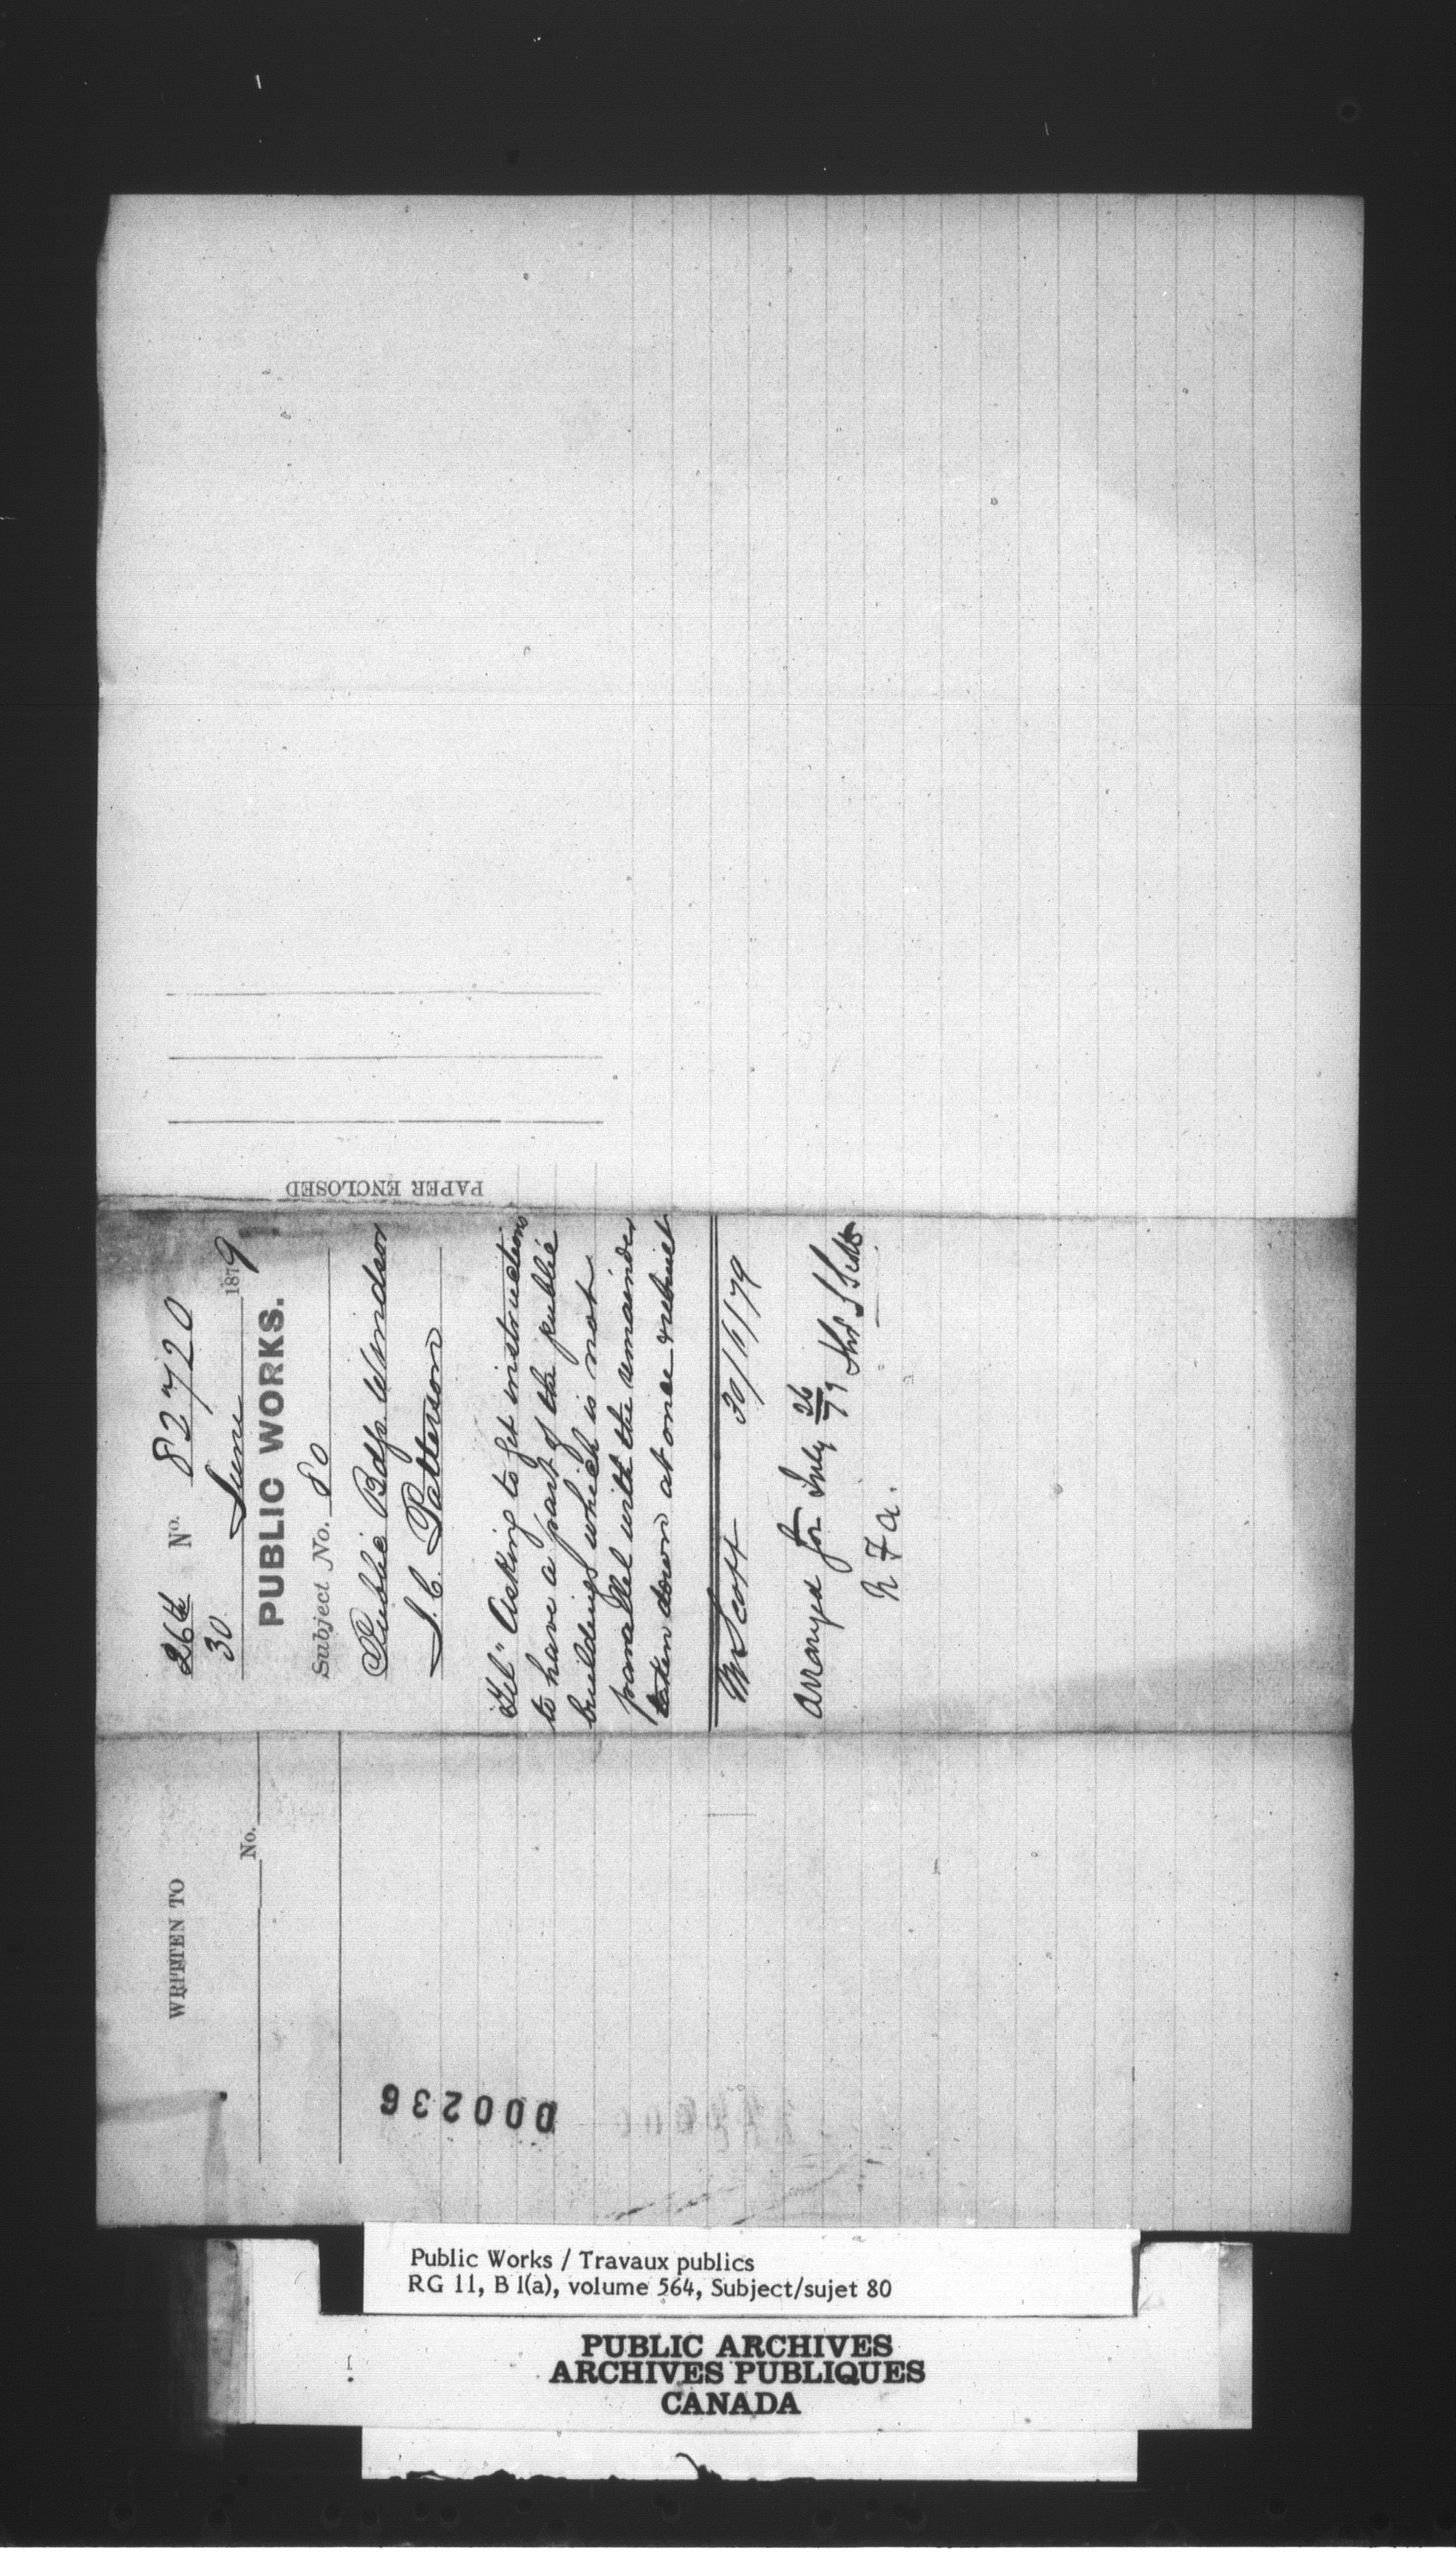 26th No. 82720
30 June 1879
PUBLIC WORKS.
Subject No. 80
Public Bdgs Windsor
J. C. Patterson
Tel" Asking to get instructions
to have a part of the public
buildings which is not
parallel with the remainder
taken down at once & rebuilt
Mr Scott 30/6/79
Arranged for July 26/79 Thos S Scott
PAPER ENCLOSED
WRITTEN TO
No.
000236
Public Works / Travaux publics
RG 11, B 1(a), volume 564, Subject/sujet 80
PUBLIC ARCHIVES
ARCHIVES PUBLIQUES
CANADA